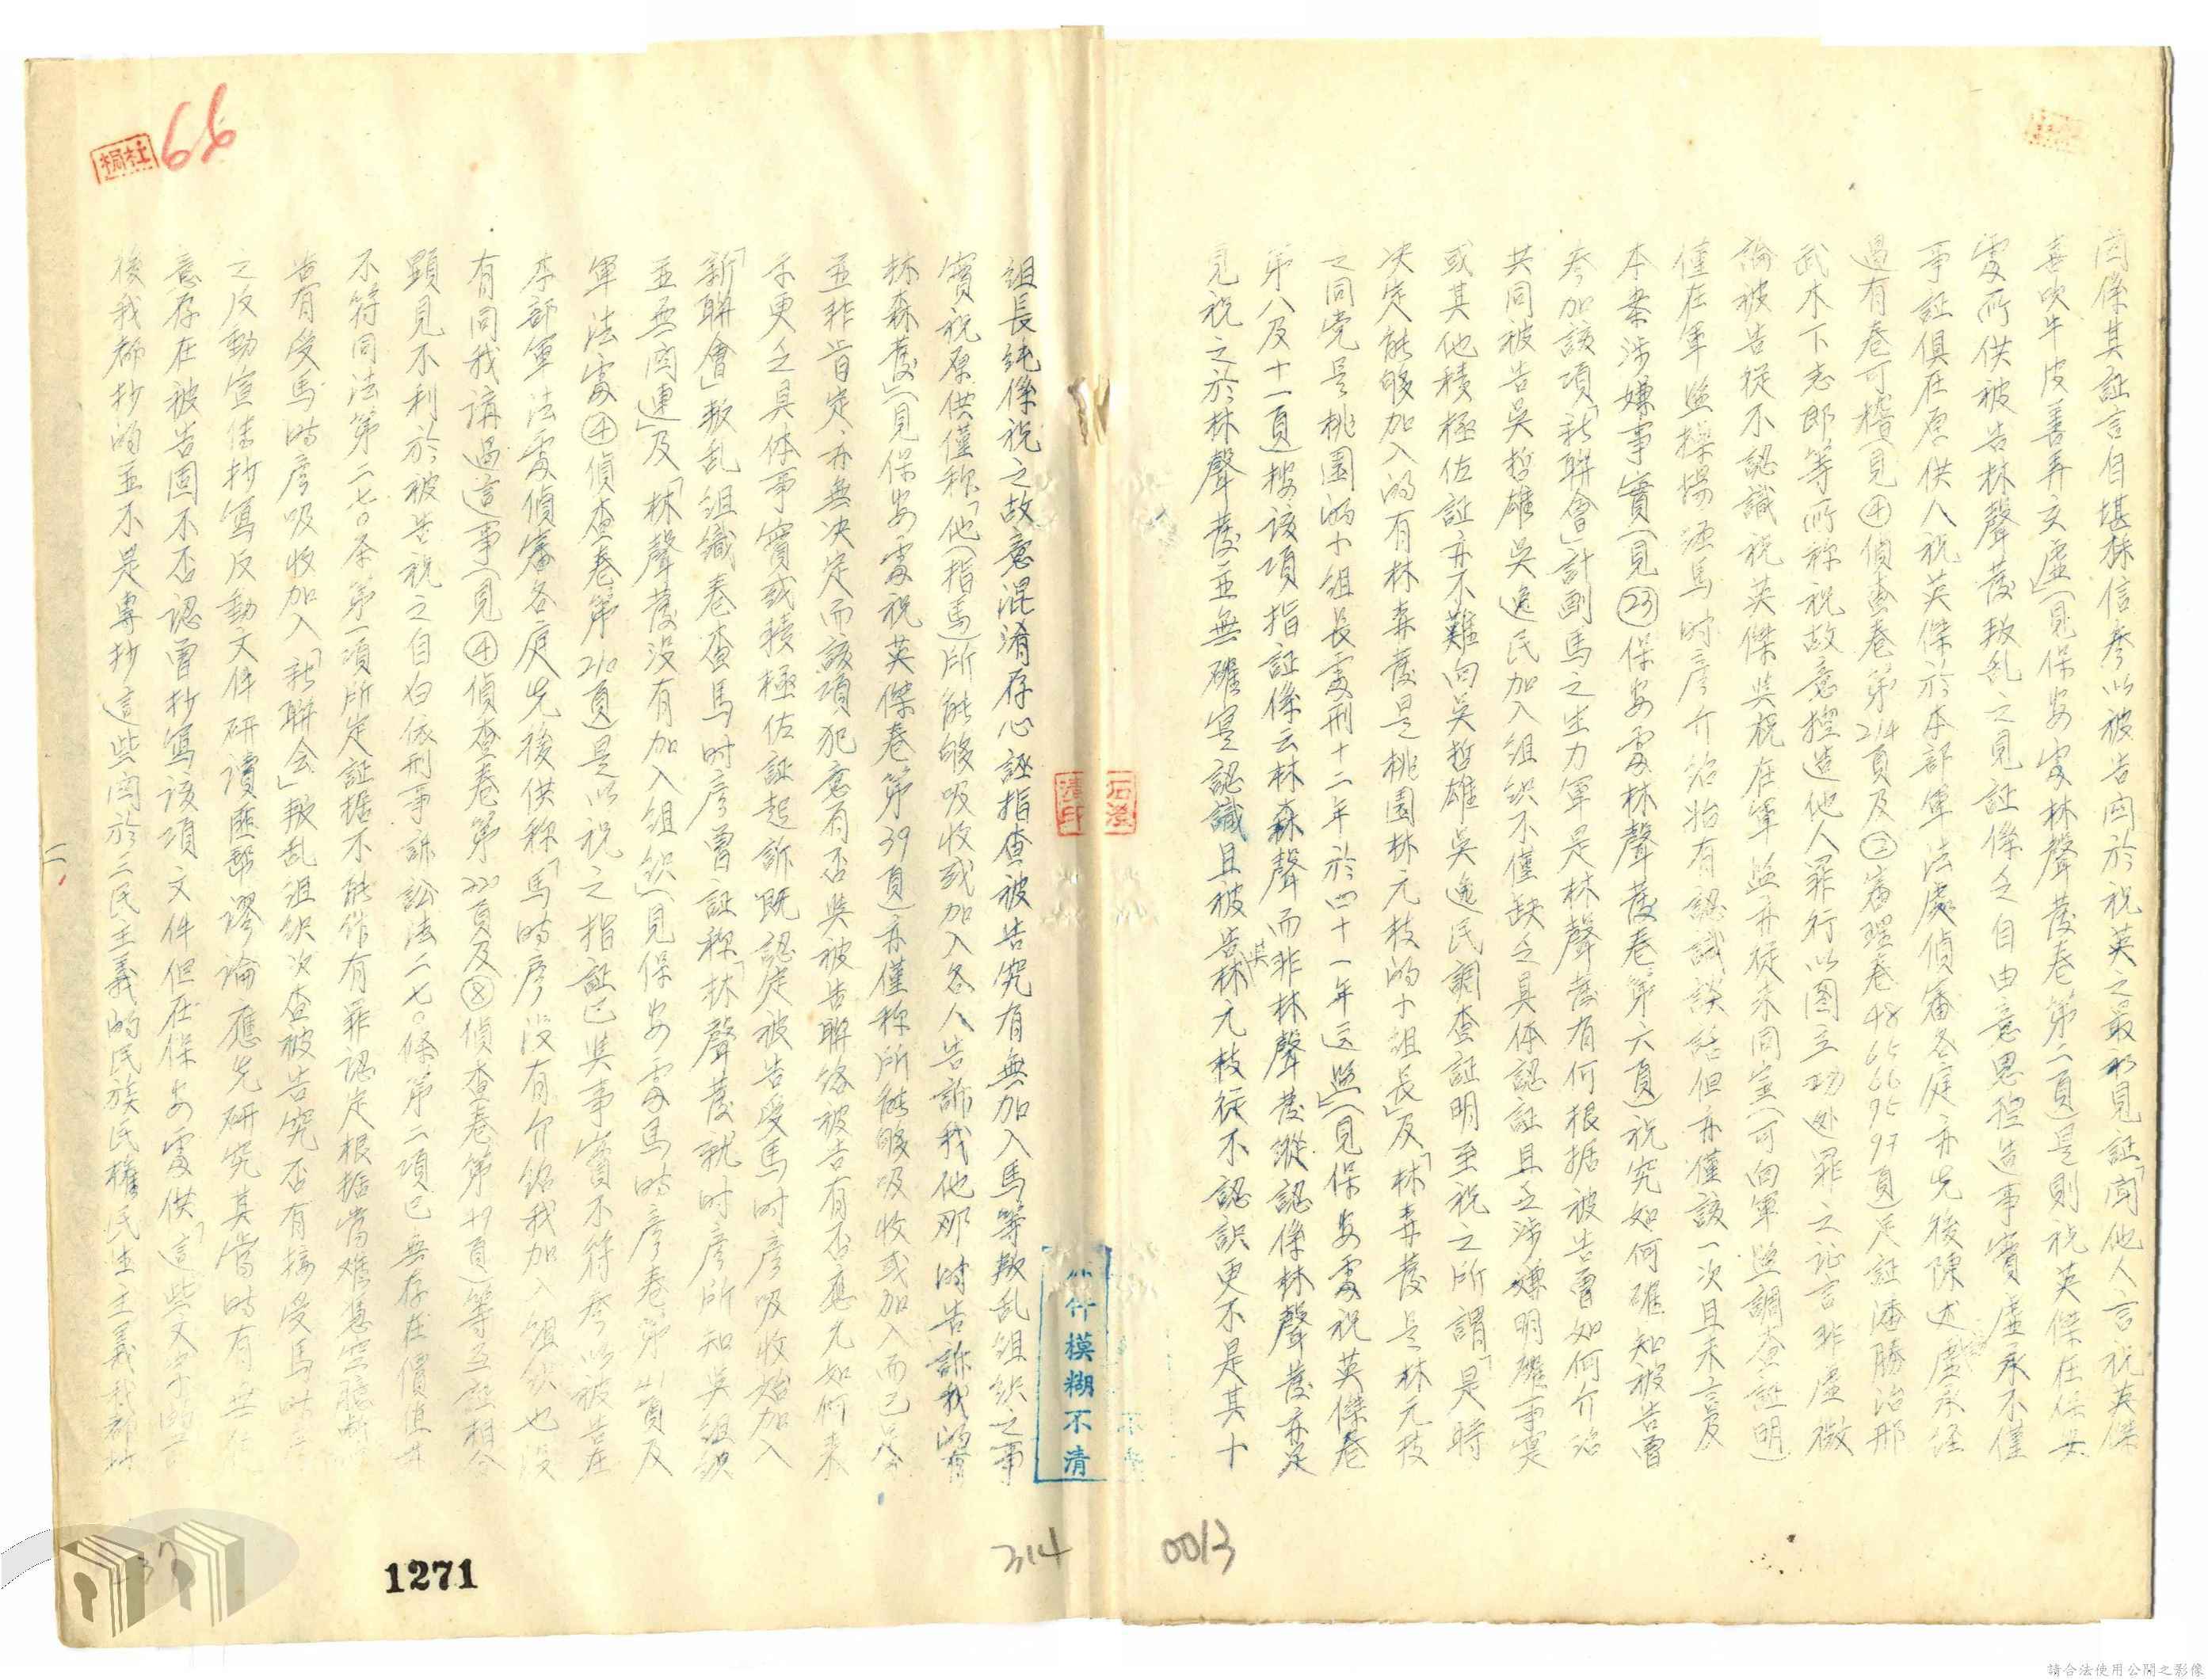 因係其証言自堪採信參以被告因於祝英之最初見証「聞他人言祝英傑
喜吹牛皮善弄文虛」(見保安處林聲發卷第二頁)是則祝英傑在保安
處所供被告林聲發叛乱之見証係乏自由意思捏造事實虛承不僅
事証俱在原供人祝英傑於本部軍法處偵審各庭亦先後陳述虛承經
過有卷可稽(見④偵查卷第214頁及②審理卷48 65 66 75 97頁)足証潘勝治邢
武木下志郎等所称祝故意揑造他人罪行以图立功处罪之証言非虛微
論被告從不認識祝英傑吳祝在軍监亦從未同室(可向軍监調查証明)
僅在軍监操場経馬时彥介紹始有認識談話但亦僅該一次且未言及
本案涉嫌事實(見㉓保安處林聲發卷第六頁)祝究如何確知被告曾
参加該項「新聯會」計劃馬之生力軍是林聲發有何根据被告曾如何介紹
共同被告吳哲雄吳逸民加入組织不僅缺乏具体認証且乏涉嫌明確事实
或其他積極佐証亦不難向吴哲雄吳逸民調查証明至祝之所謂「是時
决定能够加入的有林森發是桃園林元枝的小組長」及「林森發是林元枝
之同党是桃園的小組長處刑十二年於四十一年送監」(見保安處祝英傑卷
第八及十一頁)按該項指証係云林森聲而非林聲發縱認係林聲發亦足
見祝之於林聲發並無確实認識且被告吳林元枝従不認識更不是其小
組長純係祝之故意混淆存心誣指查被告究有無加入馬等叛乱組织之事
實祝原供僅称「他(指馬)所能够吸收或加入各人告訴我他那时告訴我的有
林森發」(見保安處祝英傑卷第39頁)亦僅称所能够吸收或加入而已是
並非肯定亦無决定而該項犯意有否吳被告聯絡被告有否應允如何未
示更乏具体事實或積極佐証起訴既認定被告受馬时彥吸收始加入
「新聯會」叛乱組織卷查馬时彥曾証称「林聲發就时彥所知吳組織
並無関連」及「林聲發没有加入組织」(見保安處馬时彥卷第41頁及
軍法處④偵查卷第210頁)是以祝之指証已吳事實不符參以被告在
本部軍法處偵審各庭先後供称「馬时彥没有介紹我加入組织也没
有同我講過這事」(見④偵查卷第220頁及⑧偵查卷第19頁)等互証相合
顕見不利於被告祝之自白依刑事訴訟法二七〇條第二項已無存在價值并
不符同法第二七〇条第一項所定証据不能作有罪認定根据當难憑空臆断
告有受馬时彥吸收加入「新聯会」叛乱組织次查被告究否有接受馬时彥
之反動宣传抄寫反動文件研讀匪帮謬論應先研究其當时有無
意存在被告固不否認曾抄寫該項文件但在保安處供「這些文字的
後我都抄的並不是專抄這些関於三民主義的民族民權民生主義我都抄
行模糊不清
石澄
清印
杜桐
66
二
314
0013
1271
請合法使用公開之影像